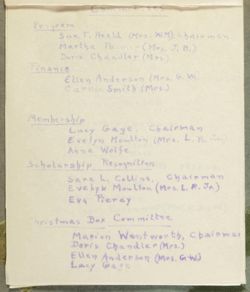 Committees
Program
Sue T. Heald (Mrs. WM) Chairman
Martha (Mrs. J. B.)
Doris Chandler (Mrs.)
Finance
Ellen Anderson (Mrs. G. W)
Carrie Smith (Mrs.)
Membership
Lucy Gage, Chairman
Evelyn Moulton (Mrs. L. R. Jr.)
Anna Wolfe
Scholarship Recognition
Sara L. Collins, Chairman
Evelyn Moulton (Mrs. L. R. Jr.)
Eva Pieray
Christmas Box Committee
Marion Wentworth, Chairman
Doris Chandler (Mrs.)
Ellen Anderson (Mrs. G. W)
Lucy Gage